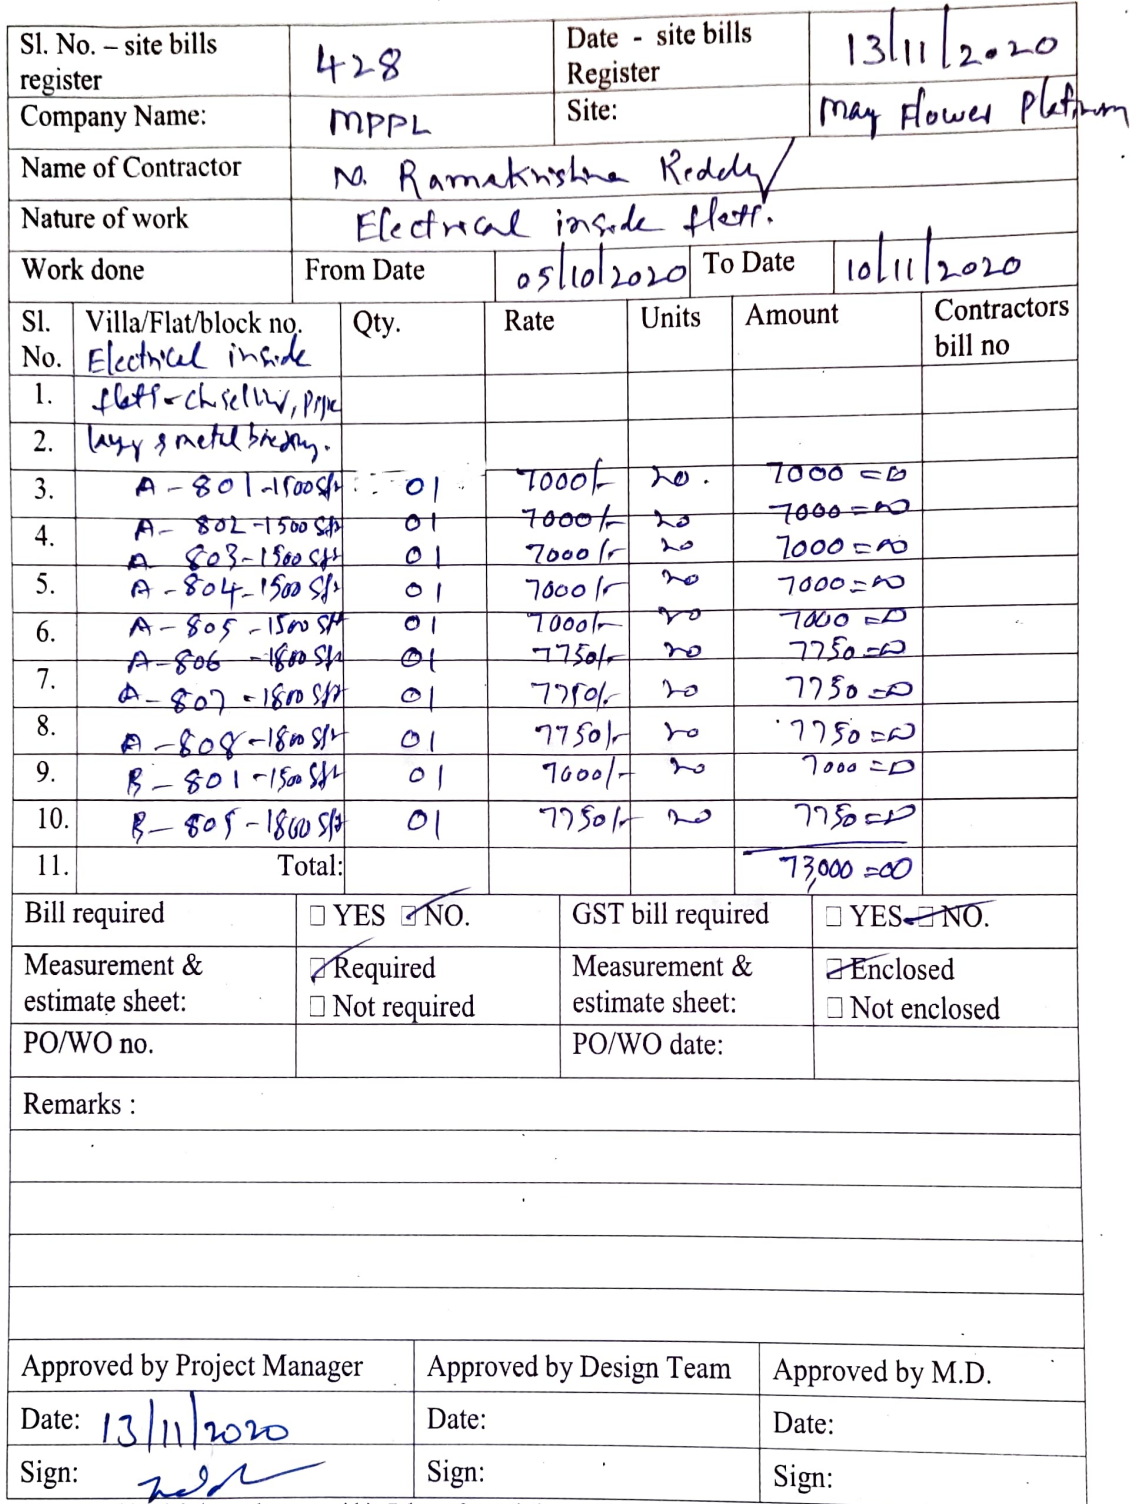 Sl. No. – site bills register 428 Date - site bills Register 13/11/2020
Company Name: MPPL Site: May Flower Platinum
Name of Contractor N. Ramakrishna Reddy
Nature of work Electrical inside flats.
Work done From Date 05/10/2020 To Date 10/11/2020
Sl. No. Villa/Flat/block no. Qty. Rate Units Amount Contractors bill no
Electrical inside
1. flats - chiselling, pipe
2. laying & metal
3. A - 801 - 1500 Sft 01 7000/- no. 7000 =00
4. A - 802 - 1500 Sft 01 7000/- no 7000 =00
A 803 - 1500 Sft 01 7000/- no 7000 =00
5. A - 804 - 1500 Sft 01 7000/- no 7000 =00
6. A - 805 - 1500 Sft 01 7000/- no 7000 =00
A - 806 - 1800 Sft 01 7750/- no 7750 =00
7. A - 807 - 1800 Sft 01 7750/- no 7750 =00
8. A - 808 - 1800 Sft 01 7750/- no 7750 =00
9. B - 801 - 1500 Sft 01 7000/- no 7000 =00
10. B - 805 - 1800 Sft 01 7750/- no 7750 =00
11. Total: 73,000 =00
Bill required ☐ YES ☑ NO. GST bill required ☐ YES ☑ NO.
Measurement & estimate sheet: ☑ Required Measurement & estimate sheet: ☑ Enclosed
☐ Not required ☐ Not enclosed
PO/WO no. PO/WO date:
Remarks :
Approved by Project Manager Approved by Design Team Approved by M.D.
Date: 13/11/2020 Date: Date:
Sign: Sign: Sign: